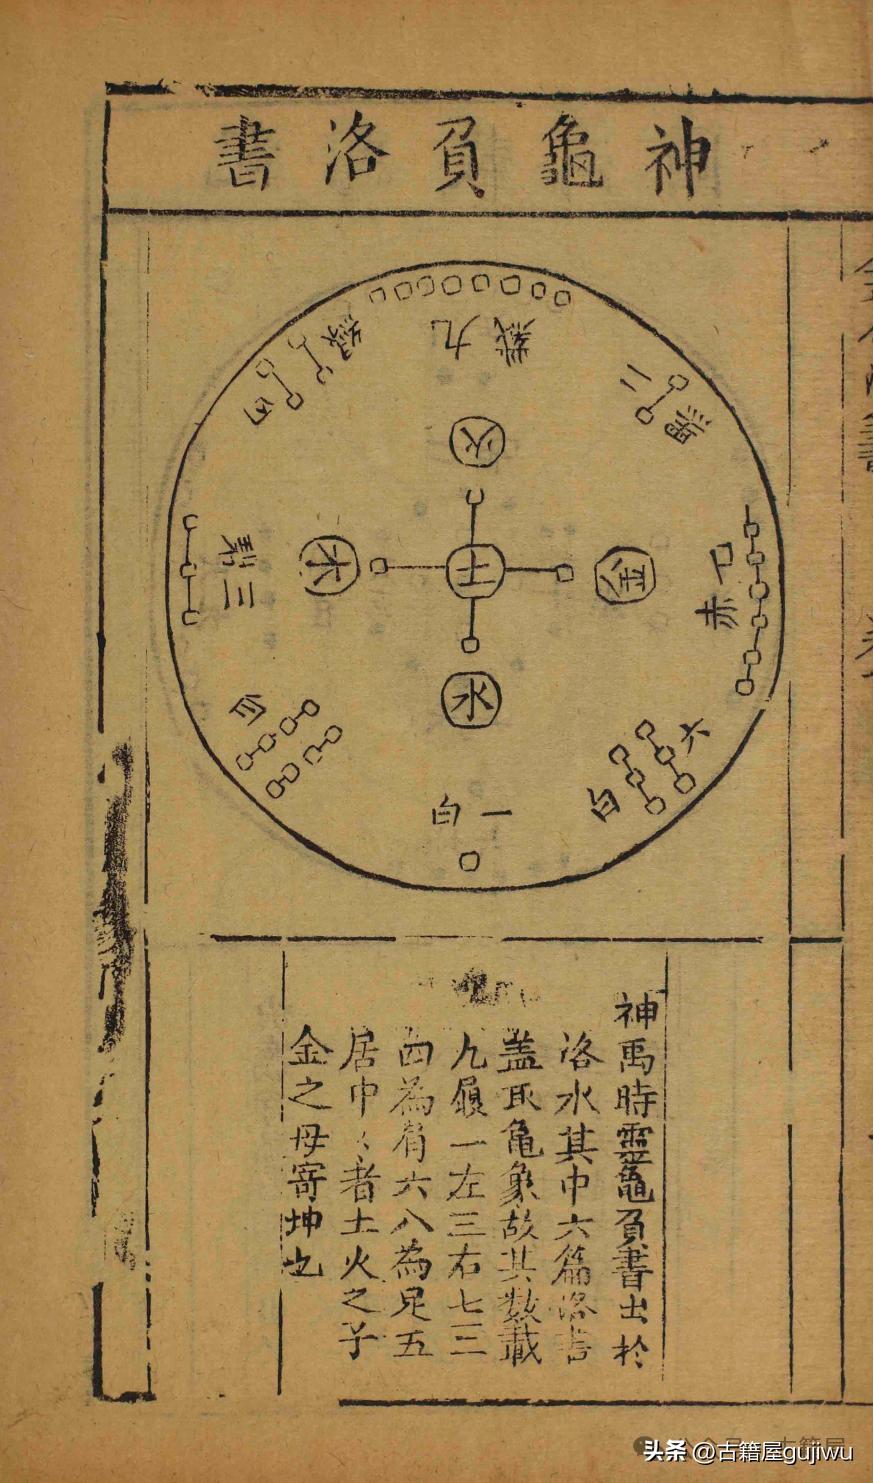 神龜負洛書
戴九
二黑
綠四
火
七赤
金
王
木
三碧
水
六白
白
一白
神禹時靈龜負書出於
洛水其中六篇洛書
盖取龜象故其数戴
九履一左三右七三
四為肩六八為足五
居中〻者土火之子
金之母寄坤也
头条 @古籍屋gujiwu